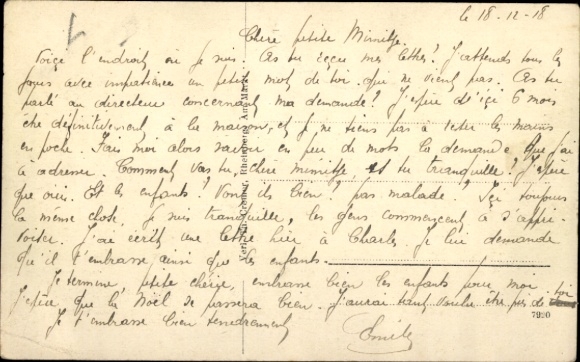 le 18-12-18
Chère petite Minette.
Voiçi l'endroit où je suis. As tu reçu mes lettres? J'attends tous les
jours avec impatience un petit mot de toi qui ne vient pas. As tu
parlé au directeur concernant ma demande? J'espère d'içi 6 mois
être définitivement à la maison, et je ne tiens pas à rester les mains
en poche. Fais moi alors savoir en peu de mots la demande que j'ai
à adresser. Comment vas tu, chère minette, es tu tranquille? J'espère
que oui. Et les enfants? Vont ils bien? pas malade? Ici toujours
la même chose, je suis tranquille, les gens commencent à s'appri-
voiser. J'ai écrit une lettre hier à Charles. Je lui demande
qu'il t'embrasse ainsi que les enfants.
Je termine, petite chérie, embrasse bien les enfants pour moi.
J'espère que la Noël se passera bien. J'aurai tant voulu être près de toi
Je t'embrasse bien tendrement
Emile
7920